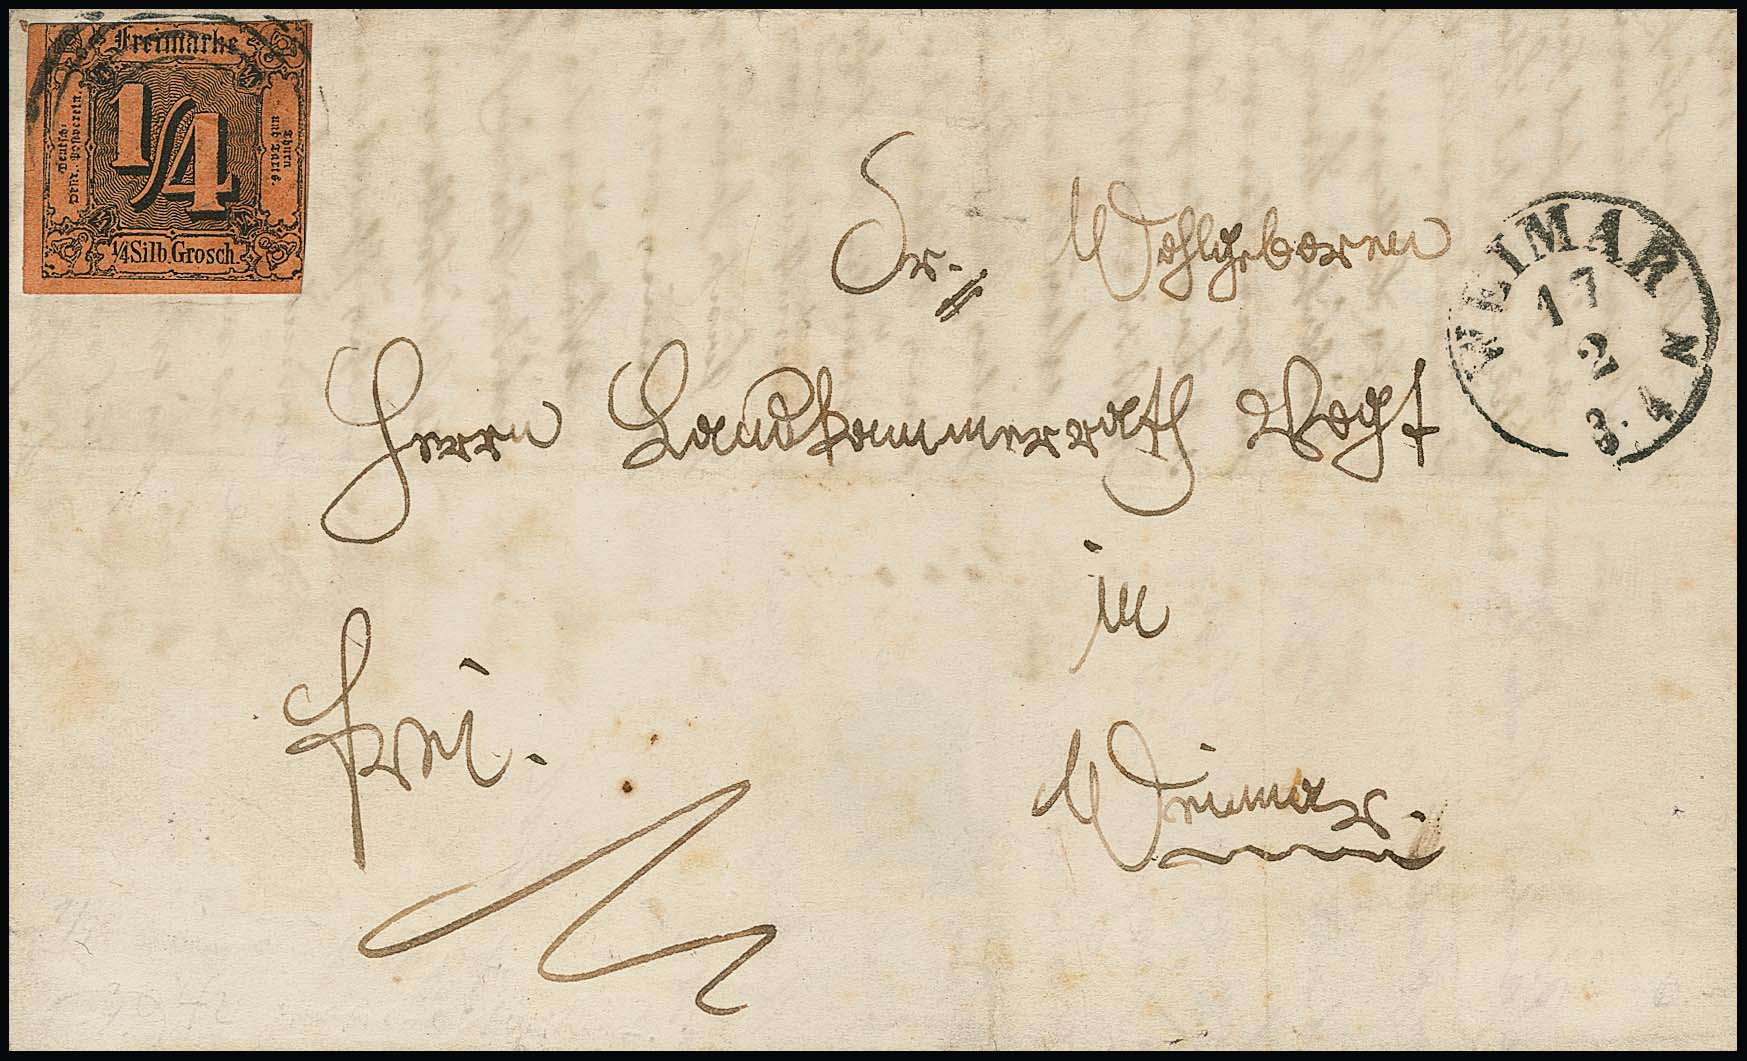 Freimarke
Deutsch-
Oestr. Postverein.
1/4
Thurn
und Taxis.
1/4 Silb. Grosch.
Sr. Wohlgeboren
WEIMAR
17
2
3·4 N
Herrn Landkammerrath Vogt
in
frei.
Weimar.